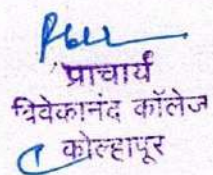 प्राचार्य
विवेकानंद कॉलेज
कोल्हापूर